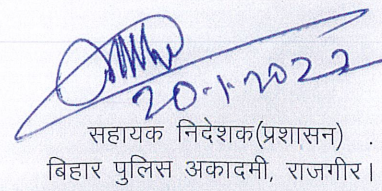 20-1-2022
सहायक निदेशक(प्रशासन)
बिहार पुलिस अकादमी, राजगीर।